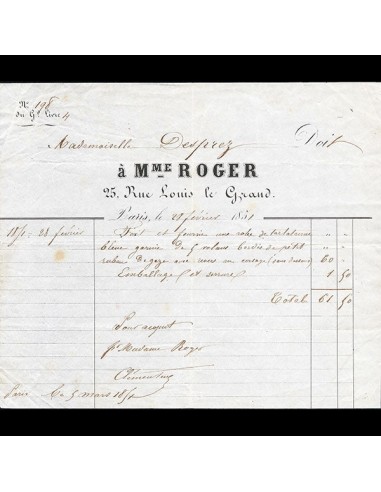 N° 198
du Gd. Livre 4
Mademoiselle Desprez Doit
à MME ROGER
25, Rue Louis le Grand.
Paris, le 28 février 1851
1851 28 février Fait et fournie une robe de tarlatanne " "
bleue garnie de 5 volans bordés de petit " "
ruban de gaze avec nœuds au corsage 60 "
L'emballage et 1 50
Total 61 50
Pour acquit
pr Madame Roger
Clémentine
Paris Ce 5 mars 1851